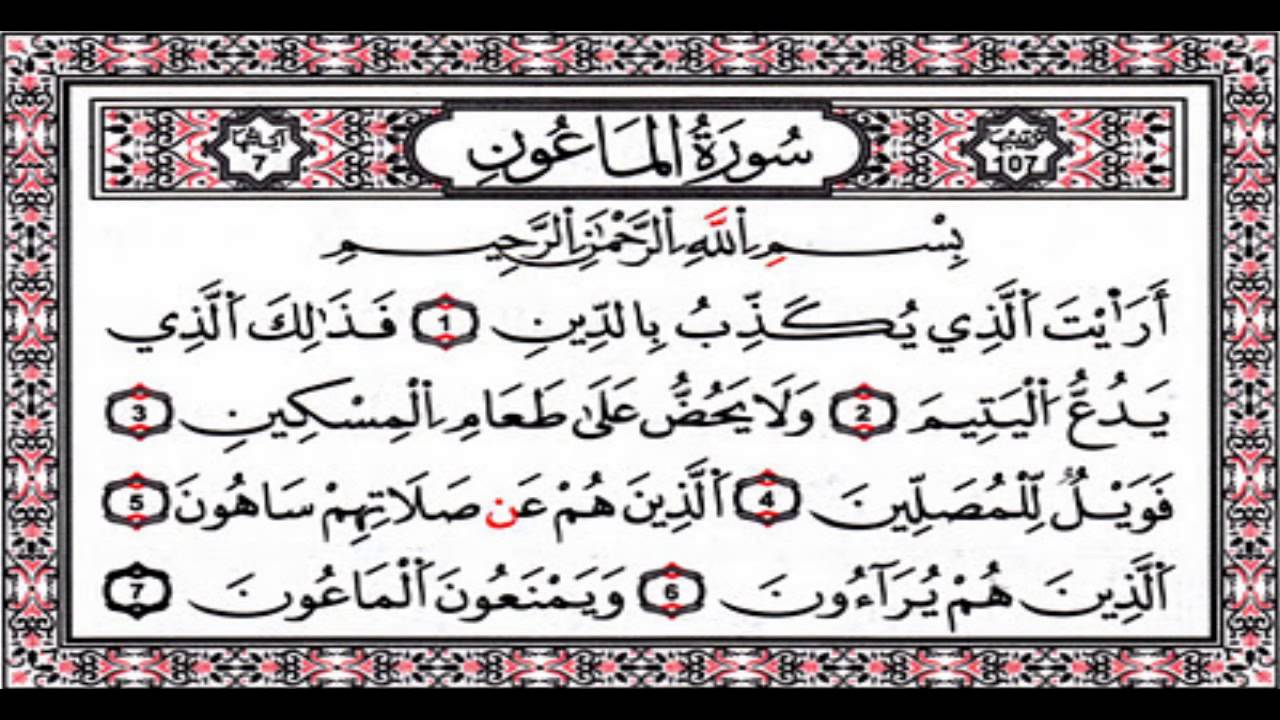 ترتيبها 107
سُورَةُ المَاعُونِ
آياتها 7
بِسْمِ اِ۬للَّهِ اِ۬لرَّحْمَٰنِ اِ۬لرَّحِيمِ
أَرَأَيْتَ اَ۬لَّذِي يُكَذِّبُ بِالدِّينِ 1 فَذَٰلِكَ اَ۬لَّذِي
يَدُعُّ اُ۬لْيَتِيمَ 2 وَلَا يَحُضُّ عَلَىٰ طَعَامِ اِ۬لْمِسْكِينِ 3
فَوَيْلٌ لِّلْمُصَلِّينَ 4 اَ۬لَّذِينَ هُمْ عَن صَلَاتِهِمْ سَاهُونَ 5
اَ۬لَّذِينَ هُمْ يُرَآءُونَ 6 وَيَمْنَعُونَ اَ۬لْمَاعُونَ 7